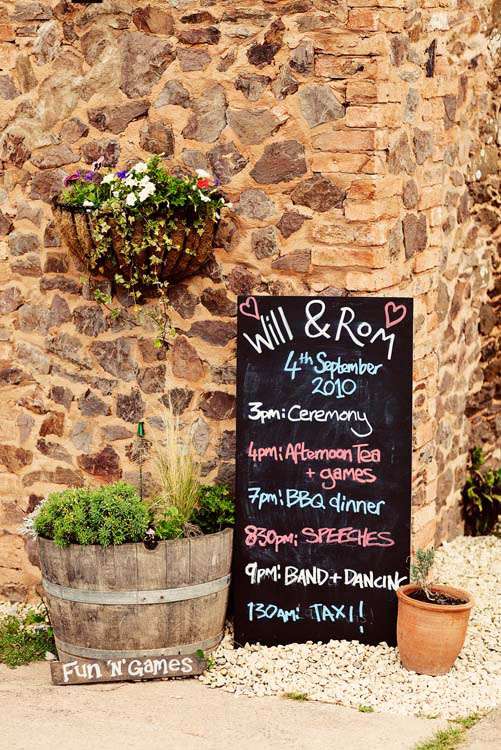 Will & Rom
4th September
2010
3pm: Ceremony
4pm: Afternoon Tea
+ games
7pm: BBQ dinner
830pm: SPEECHES
9pm: BAND + DANCING
130am: TAXI!
Fun 'N' Games